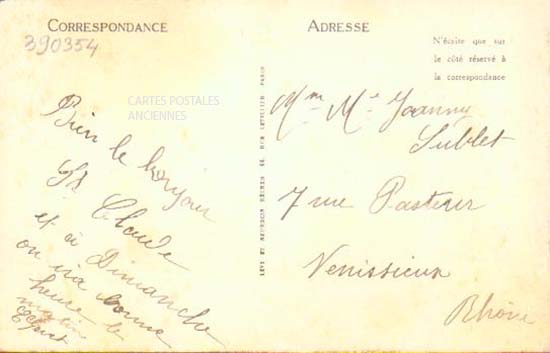 CORRESPONDANCE
390354
CARTES POSTALES
ANCIENNES
Bien le bonjour
St Claude
et à Dimanche
on ira bonne
heure le
matin
ADRESSE
N'écrire que sur
le côté réservé à
la correspondance
Mm Me Joanny
Sublet
7 rue Pasteur
Venissieux
Rhône
LEVY ET NEURDEIN RÉUNIS 44 RUE LETELLIER PARIS